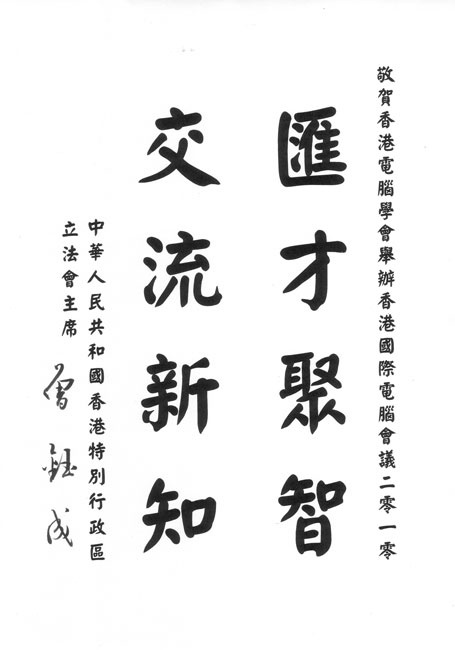 敬賀香港電腦學會舉辦香港國際電腦會議二零一零
匯才聚智
交流新知
中華人民共和國香港特別行政區
立法會主席
曾鈺成